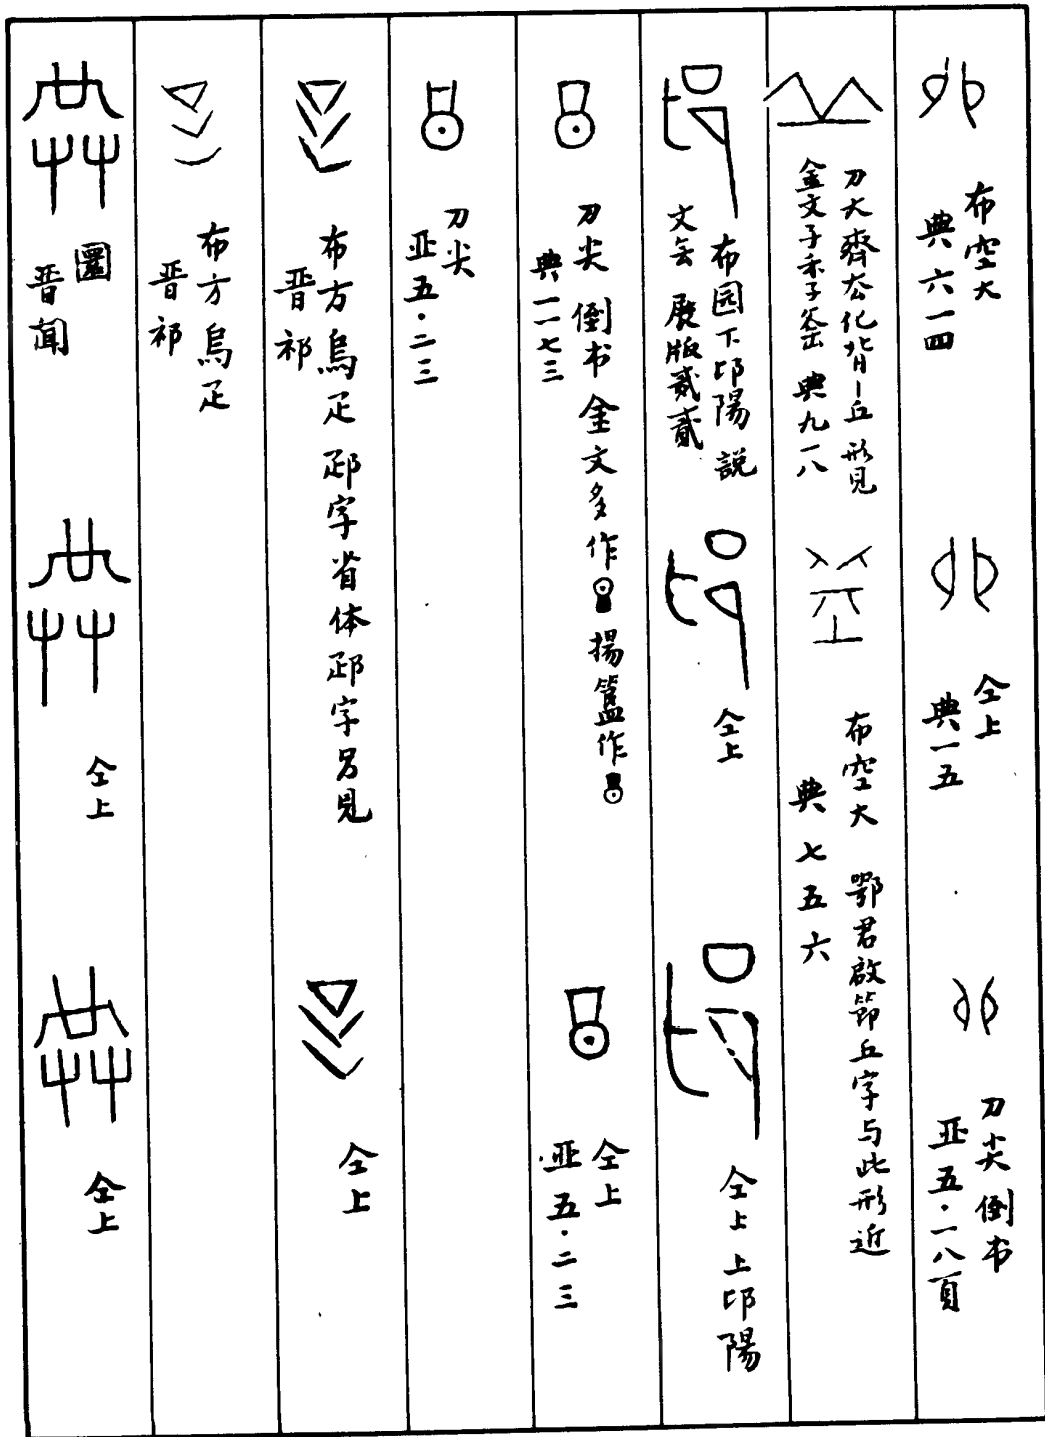 布空大
典六一四
仝上
典一五
刀尖倒书
亚五·一八頁
刀大齊厺化背丨丘形見
金文子禾子釜 典九一八
布空大 鄂君啟節丘字与此形近
典七五六
布园下邙陽説
文
展版贰貳
仝上
仝上上邙陽
刀尖倒书金文多作 揚簋作
典一一七三
仝上
亚五·二三
刀尖
亚五·二三
布方烏疋 䟽字省体䟽字另見
晋祁
仝上
布方烏疋
晋祁
圜
晋聞
仝上
仝上